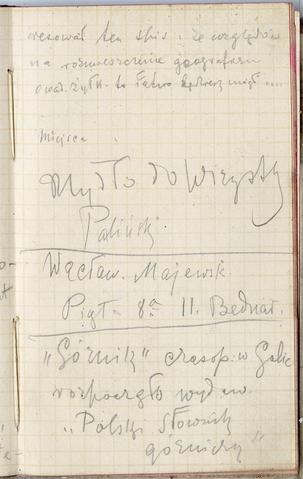 resował ten spis. ze względów
na rozmieszczenie geografi
oraz żyłk. to łatwo
Miejsca
Mydło do Wieży
Paliński
Wacław. Majewsk.
Piąt. 8ª 11. Bednar.
„Górnik" czasop. w Galic
rozpoczęło wyd.
„Polski Słownik
górniczy"